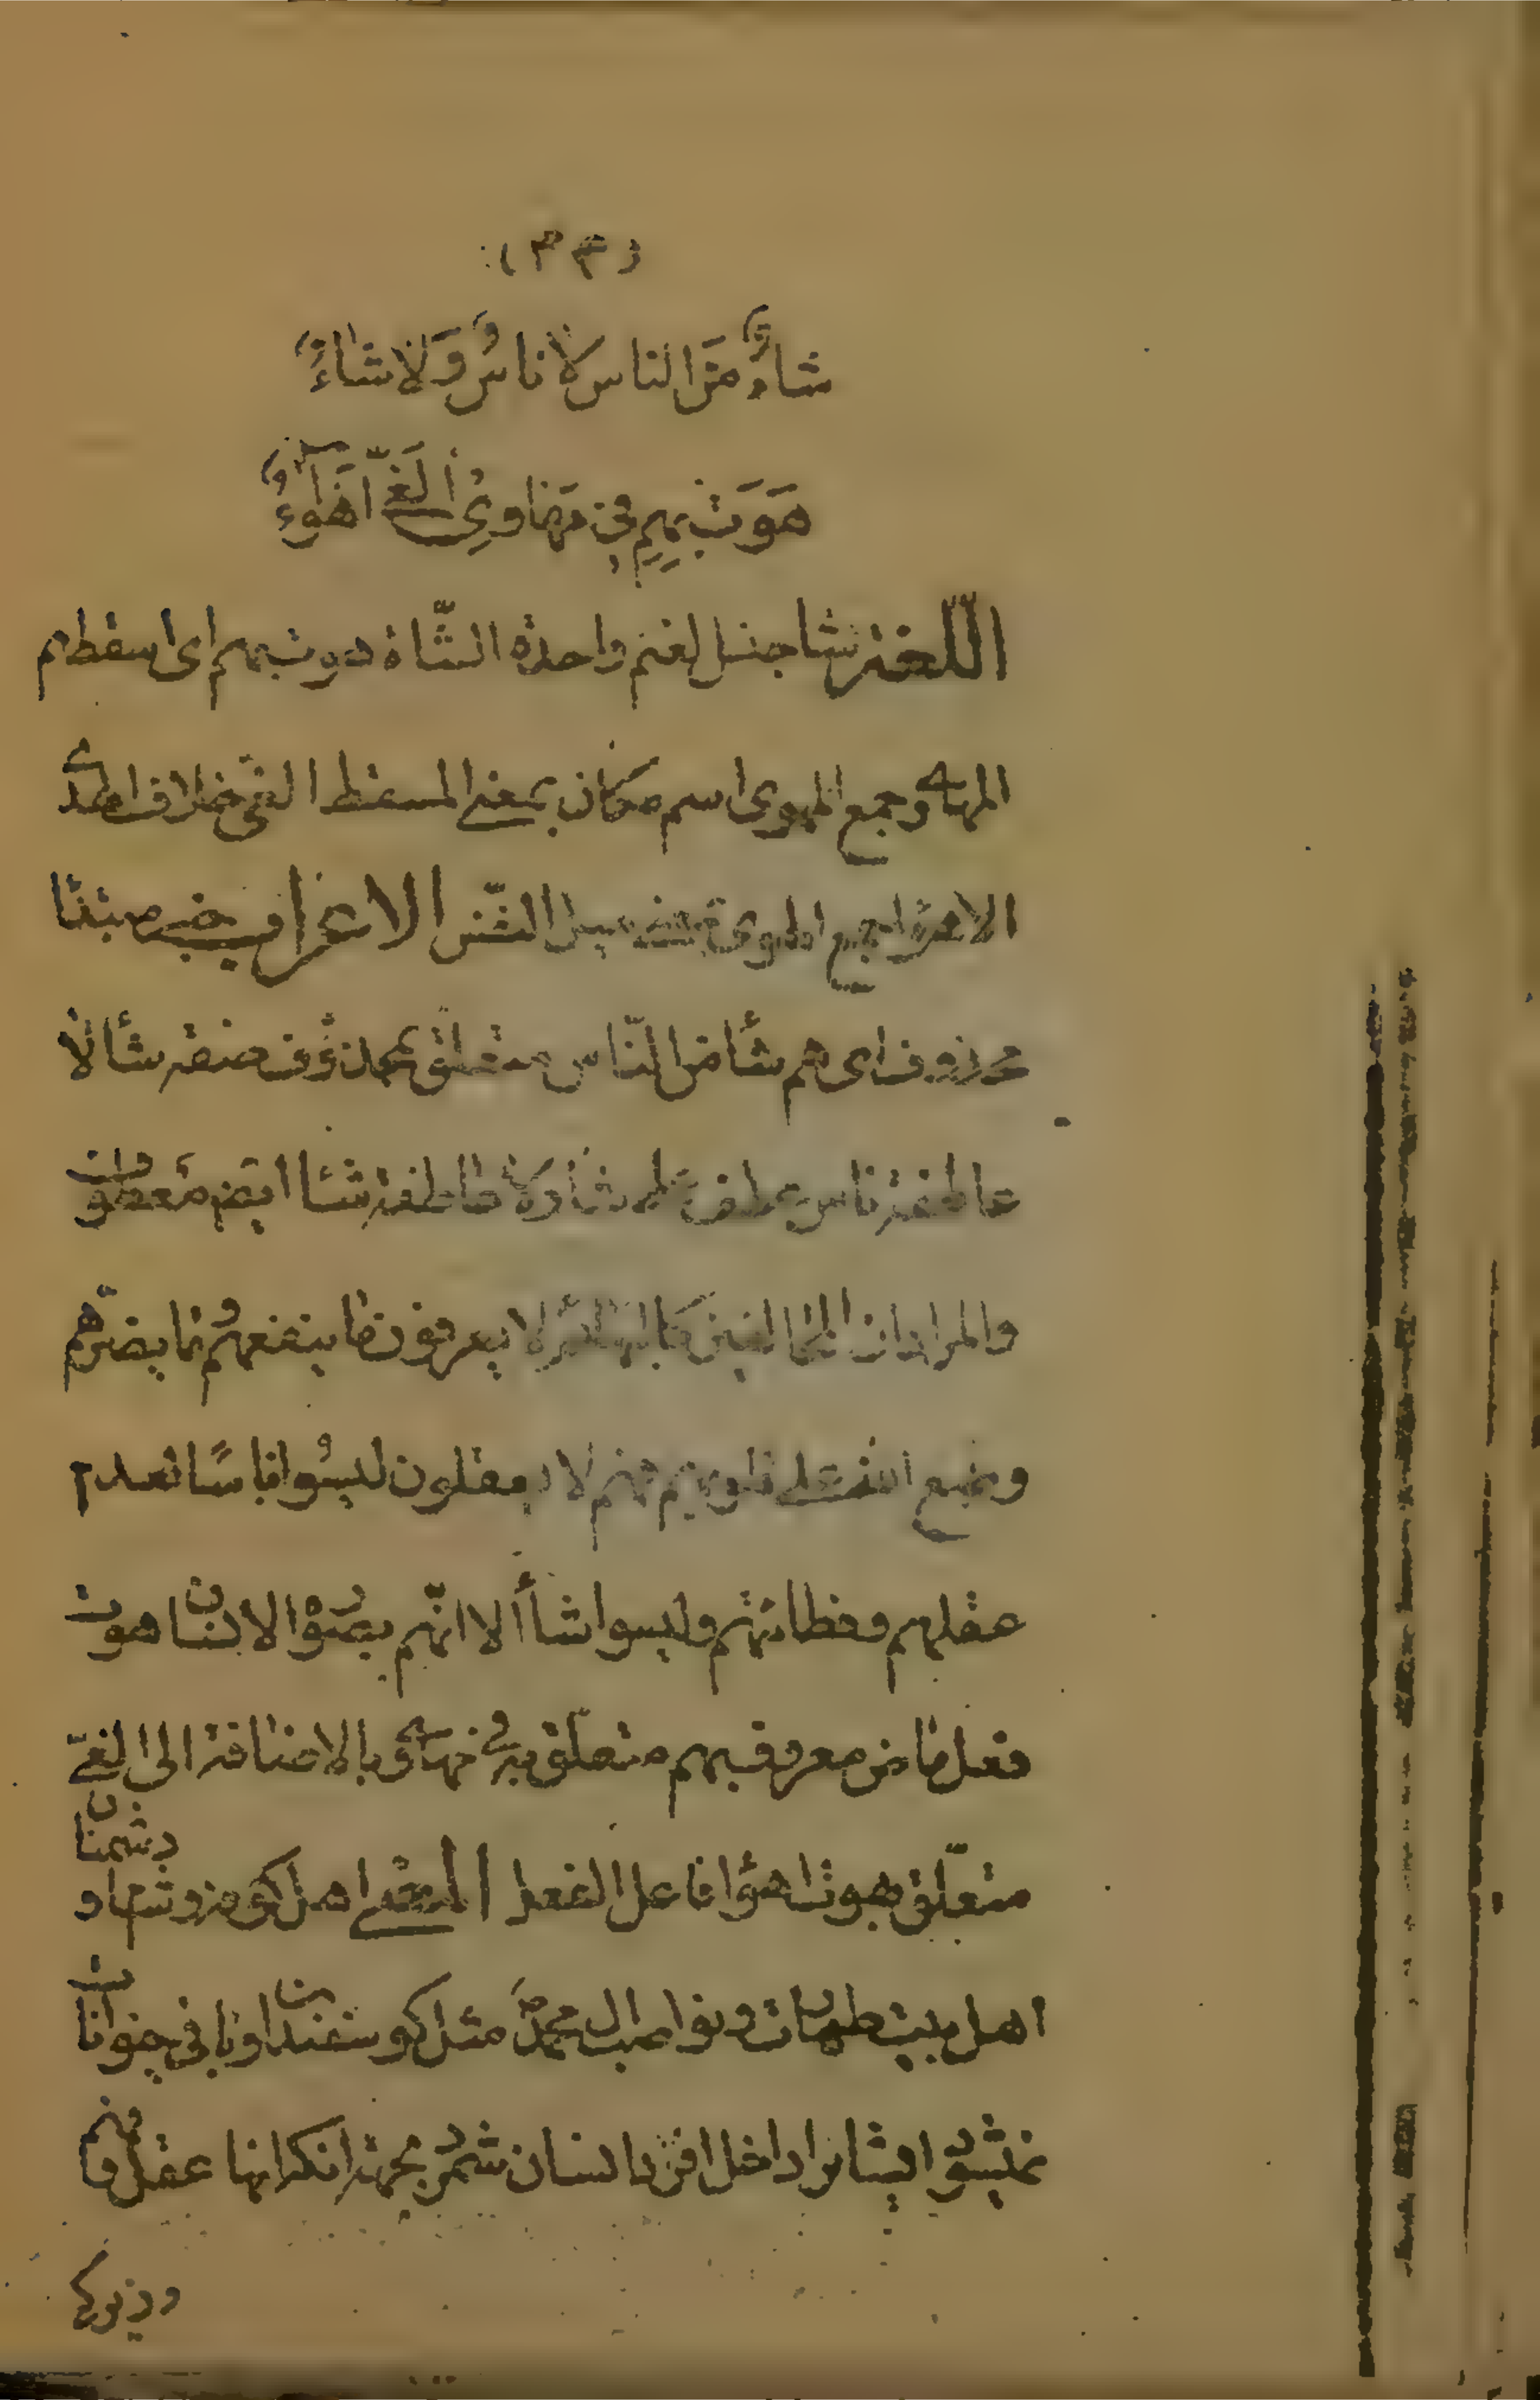 (٣٣)
شاءٌ مَنَ الناس لا ناسٌ وَلا شاءٌ
هَوَت بِهِم فى مَهاوِى اَلغَىِّ اَهْوآءٌ
اللّغة شا جنس الغنم واحدة الشّاة هوت بهم اى اسقطهم
المهاوى جمع المهوى اسم مكان بمعنى المسقط الغىّ خلاف الهدى
الاهوا جمع الهوى بمعنى ميل النّفس الاعراب خبر مبتدا
محذوف اى هم شأ من النّاس متعلّق بمحذوف صفة شأ لا
عاطفة ناس عطف على شأ ولا عاطفة شأ ايضا معطوف
والمراد ان المخالفين كالبهائم لا يعرفون ما ينفعهم وما يضرّهم
وطبع الله على قلوبهم فهم لا يعقلون ليسُوا ناسًا لعدم
عقلهم وفطانتهم وليسوا شأ الا انّهم بصورة الانسان هوت
فعل ماض معروف بهم متعلّق به فى مهاوى بالاضافة الى الغىّ
متعلّق بهوت اهوٓا فاعل الفعل المعنى اهل كوفه و شام و دشمنان
اهل بيت طهارت و نواصب ال محمدؐ مثل كوسفندان و باقى حيوانات
نميشود ايشانرا داخل افراد انسان شمرد بجهة انكه انها عقل و فهم
و زيركى